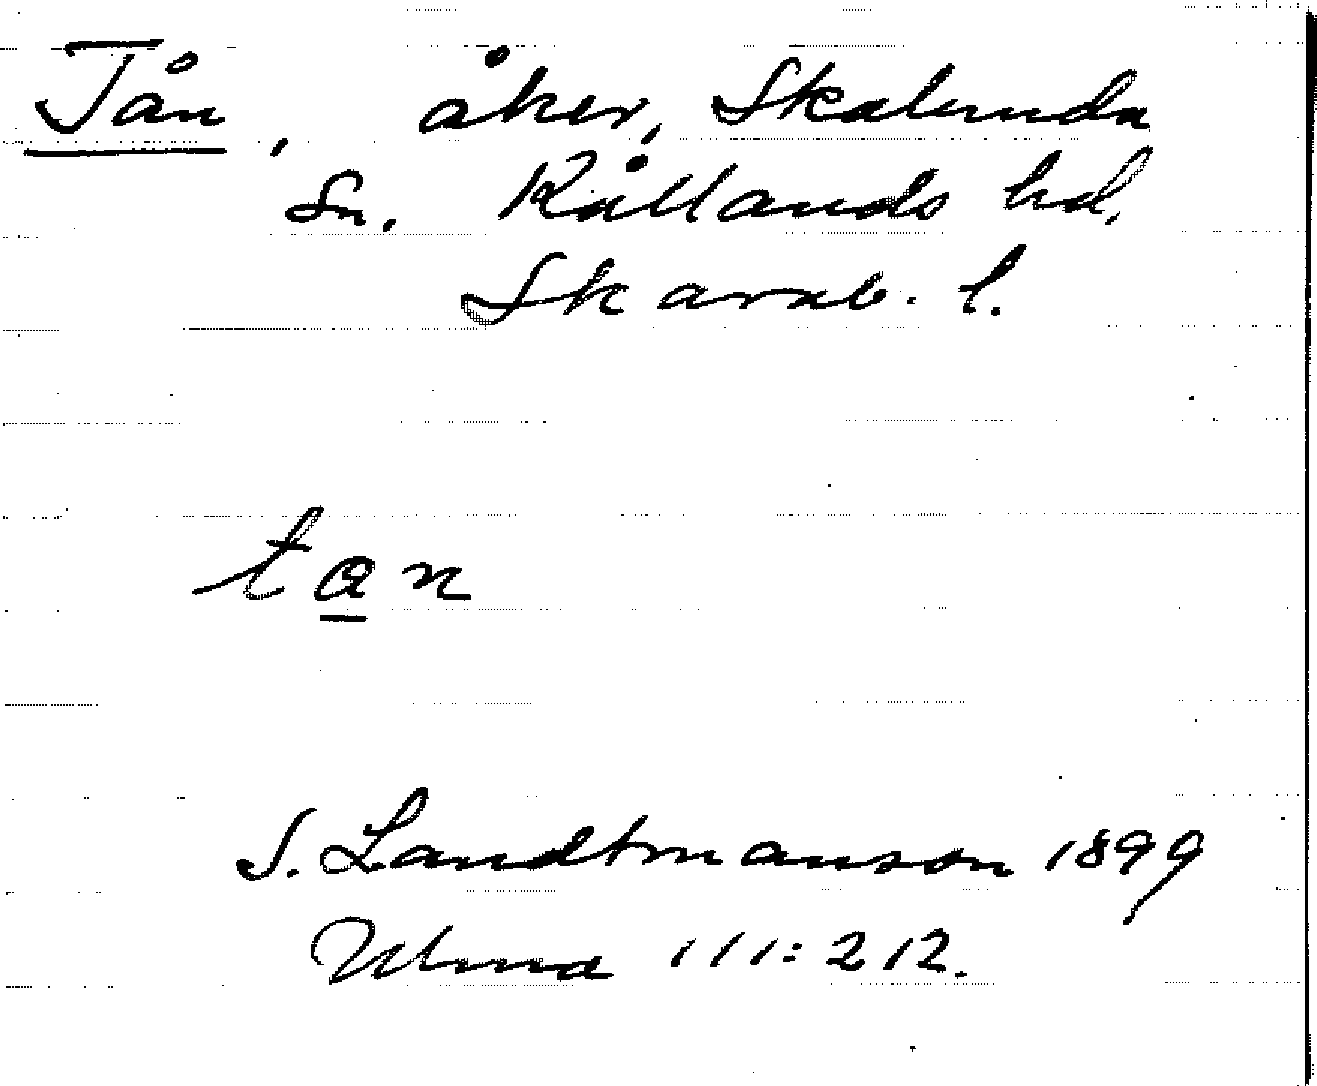 Tån, åker, Skalunda
sn. Kållands hd,
Skarab. l.
tan
S. Landtmanson 1899
Ulma 111:212.